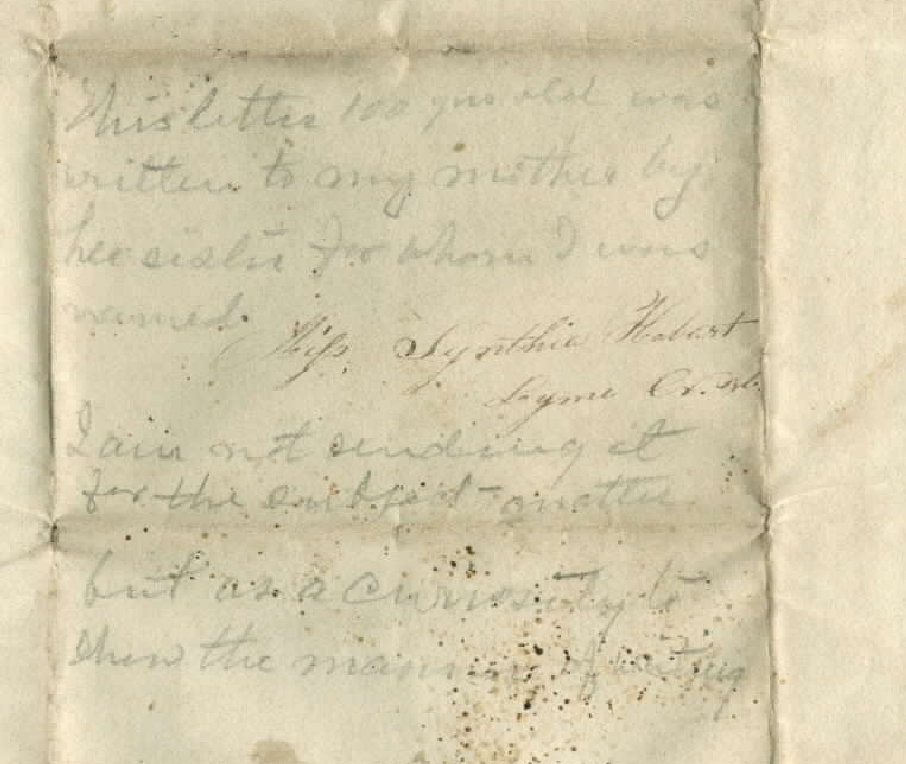 This letter 100 yrs old was
written to my mother by
her sister for whom I was
named.
Miss. Synthia Hobart
Lyme
I am not sending it
for the subject-matter
but as a curiosity to
show the manner of writing